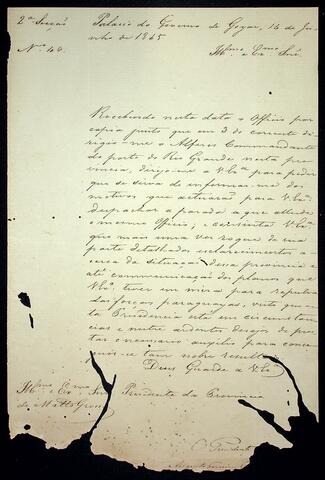 2ª Secção Palacio do Governo de Goyaz, 14 de Ju-
nho de 1865
Nº 46. Illmo e Exmo Snr.
Recebendo nesta data o Officio por
copia junto que em 3 do corrente di-
rigio-me o Alferes Commandante
do porto do Rio Grande nesta pro-
vincia, dirijo-me a V. Exª para pedir
que se sirva de informar-me dos
motivos que actuarão para V. Exª
despachar a parada a que allude
o mesmo Officio; e
que mais uma vez rogue de sua
parte detalhados esclarecimentos a-
cerca da situação dessa provincia e
até communicação dos planos que
V. Exª tiver em mira para repulsa
das forças paraguayas, visto que
a Presidencia está em circunstan-
cias e nutre ardentes desejos de pres-
tar o necessario auxilio para conse-
guir-se tam nobre resultado
Deus Guarde a V. Exª
Illmo e Exmo Snr Presidente da Provincia
de Matto Grosso
O Presidente